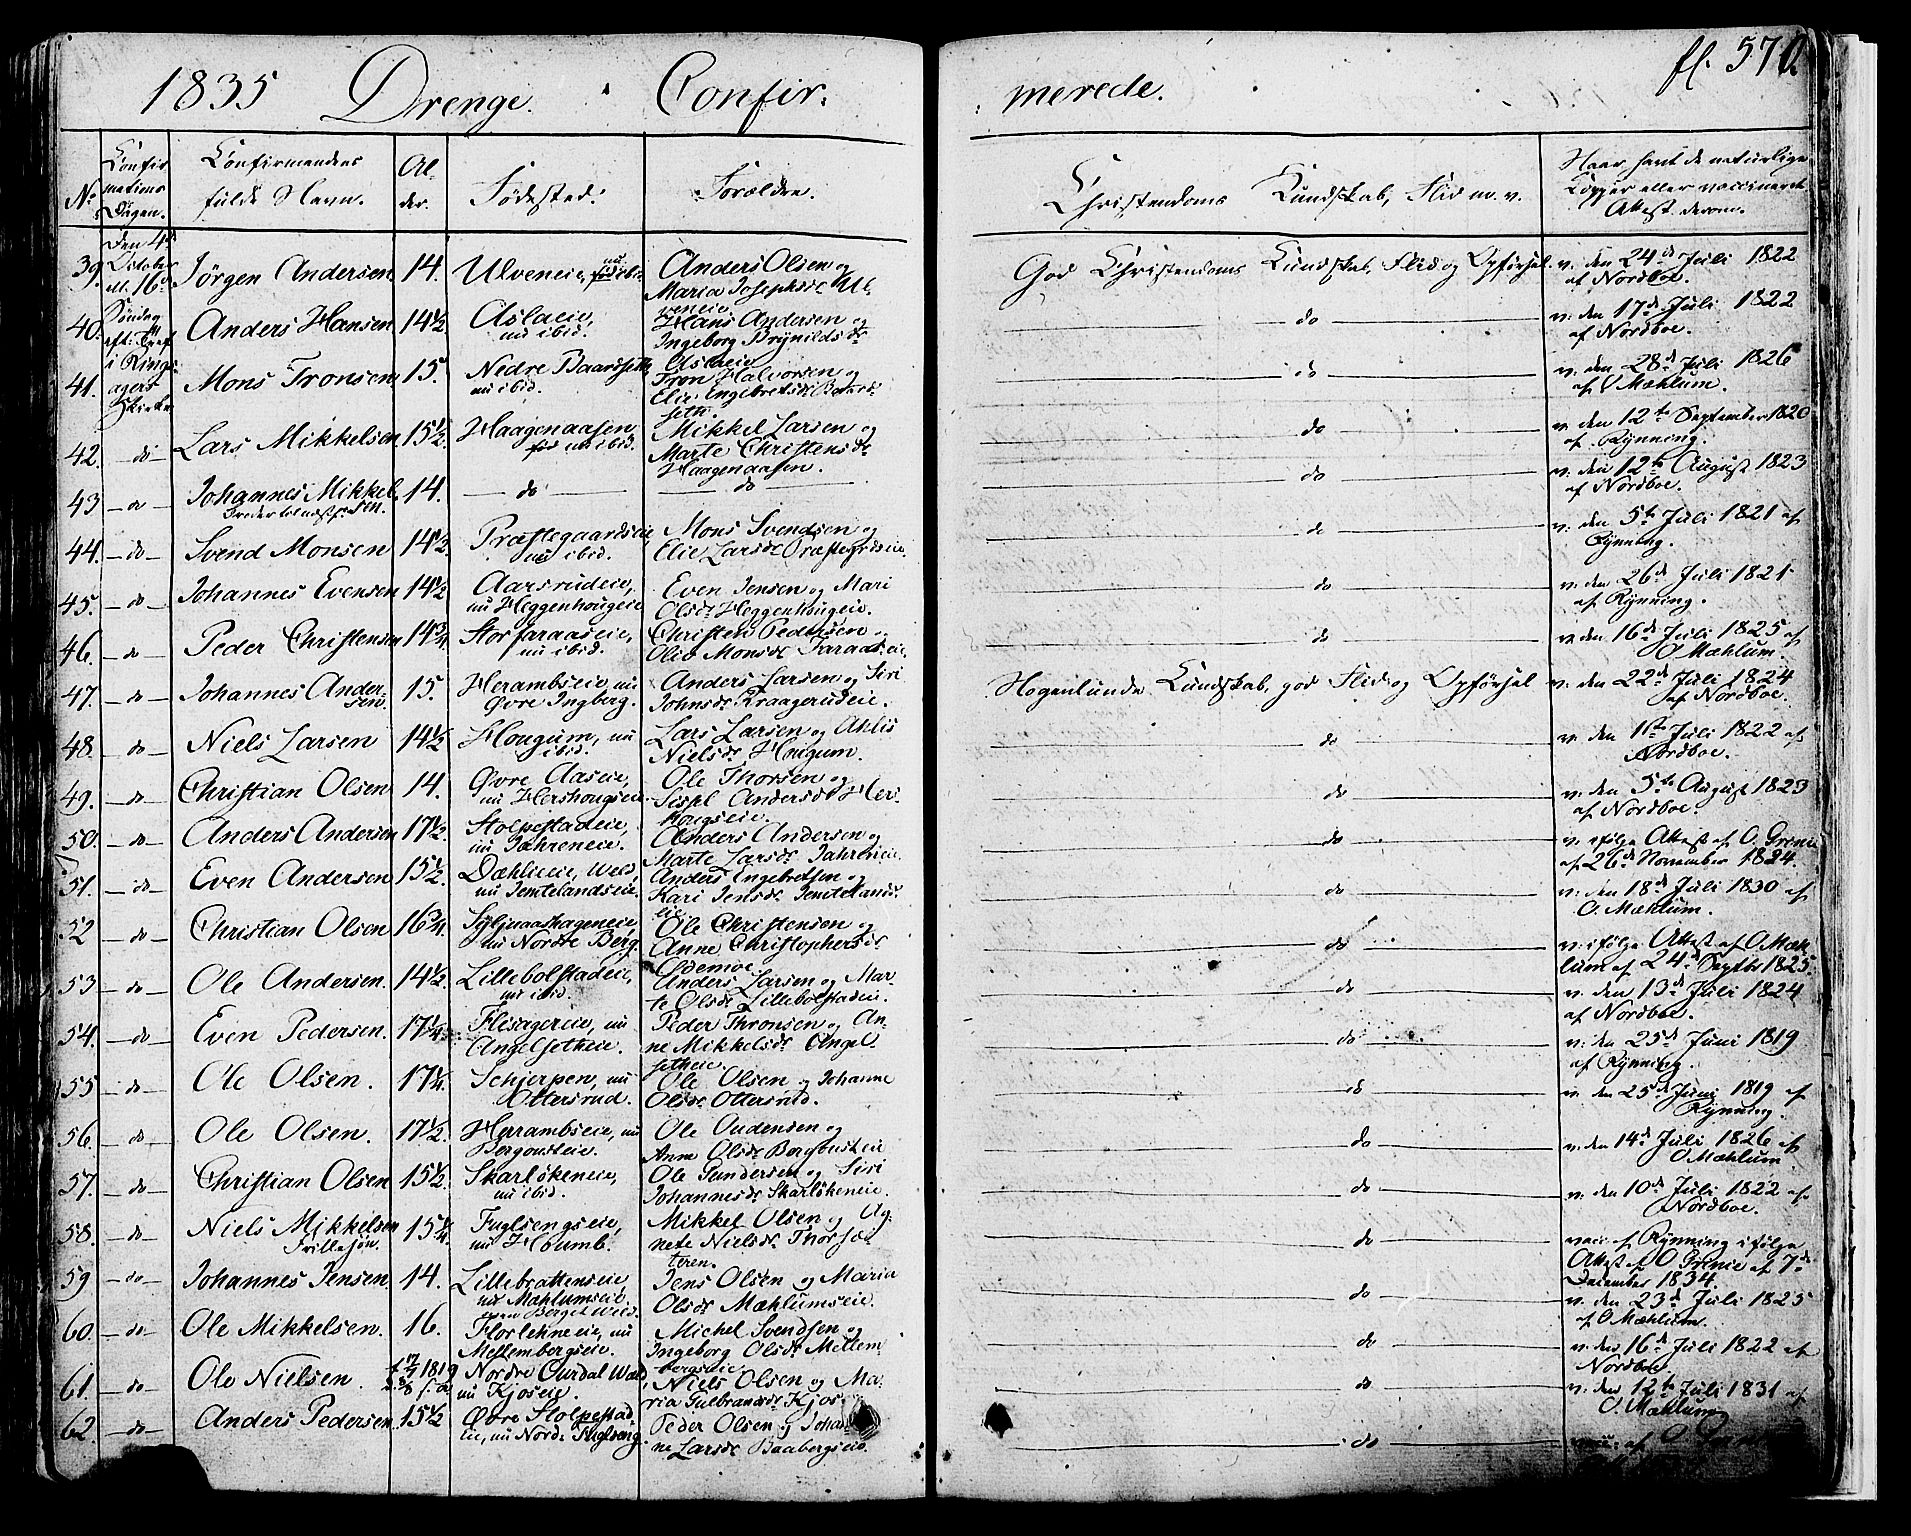 fl. 570.
1835 Drenge. Confir- merede.
No
Confir
mations
Dagen.
Confirmandens
fulde Navn.
Al-
der.
Fødested.
Forældre.
Christendoms Kundskab, Flid m. v.
Naar havt de naturlige
Kopper eller vaccineret
Attest derom.
Den 4de
October
Søndag
i Rings-
ager
Kirke
39. Jørgen Andersen 14. Ulveneie, nu ibid. Anders Olsen og
Maria Josephsdr. Ul-
veneie
God Christendoms Kundskab, Flid og Opførsel v. den 24de Juli 1822
af Nordboe.
40. Anders Hansen 14½ Aslaeie,
nu ibid. Hans Andersen og
Ingeborg Brynildsdr.
Aslaeie
do v. den 17de Juli 1822
af Nordboe.
41. Mons Tronsen 15. Nedre Baardseth
nu ibid. Tron Halvorsen og
Elie Ingebretsdr. Baard-
seth.
do v. den 28de Juli 1826
af O Mæhlum.
42. do Lars Mikkelsen 15½ Haagenaasen
nu ibid. Mikkel Larsen og
Marte Christensdr.
Haagenaasen.
do v. den 12te September 1820
af Rynning.
43 do Johannes Mikkel-
sen. 14. do do
do v. den 12te August 1823
af Nordboe.
44. do Svend Monsen 14½ Præstegaardseie
nu ibid. Mons Svendsen og
Elie Larsdr. Præstegrdseie
do v. den 5te Juli 1821 af
Rynning.
45. do Johannes Evensen 14½ Aarsrudeie,
nu Heggenhougeie Even Jensen og Mari
Olsdr. Heggenhougeie.
do v. den 26de Juli 1821
af Rynning.
46. do Peder Christensen 14¾ Storfaraaseie,
nu ibid. Christen Pedersen og
Olio Monsdr. Faraaseie.
do v. den 16de Juli 1825 af
O Mæhlum.
47. do Johannes Ander-
sen. 15. Herambseie nu
Øvre Ingberg. Anders Larsen og Siri
Johnsdr. Kraagerudeie.
Nogenlunde Kundskab, god Flid og Opførsel v. den 22de Juli 1824
af Nordboe.
48. do Niels Larsen 14½ Hougum, nu
ibid. Lars Larsen og Ahlis
Nielsdr. Hougum.
do v. den 1ste Juli 1822 af
Nordboe.
49. do Christian Olsen 14. Øvre Aaseie,
nu Hershougseie Ole Thorsen og
Sispl Andersdr. Hers-
hougseie.
do v. den 5te August 1823
af Nordboe.
50. do Anders Andersen 17½ Stolpestadeie,
nu Jahreneie. Anders Andersen og
Marte Larsdr. Jahreneie.
do v. ifølge Attest af O. Grenie
af 26de November 1824.
51. do Even Andersen 15½ Dæhlieeie,
nu Jemtelandseie, Anders Engebretsen og
Kari Jensdr. Jemtelands-
eie
do v. den 18de Juli 1830 af
O. Mæhlum.
52 do Christian Olsen 16¾ Syljuaashageneie
nu Nordre Berg. Ole Christensen og
Anne Christophersdr.
Oldemoe
do v. ifølge Attest af O Mæh-
lum af 24de Septbr 1825.
53 do Ole Andersen 14½ Lillebolstadeie,
nu ibid. Anders Larsen og Mar-
te Olsdr. Lillebolstadeie.
do v. den 13de Juli 1824
af Nordboe.
54. do Even Pedersen. 17¼ Flisagereie, nu
Angelsetheie. Peder Thronsen og An-
ne Mikkelsdr. Angel-
setheie.
do v. den 25de Juni 1819
af Rynning.
55 do Ole Olsen. 17¼ Schjerpen, nu
Ottersrud. Ole Olsen og Johanne
Olsdr. Ottersrud.
do v. den 25de Juni 1819 af
Rynning.
56. do Ole Olsen. 17½ Herrambseie, nu
Bergousteie. Ole Oudensen og
Anne Olsdr. Bergousteie
do v. den 14de Juli 1826 af
O Mæhlum.
57. do Christian Olsen 15½ Skarløkeneie,
nu ibid. Ole Gundersen og Siri
Johannesdr. Skarløkeneie.
do v. den 10de Juli 1822 af
Nordboe.
58. do Niels Mikkelsen
Frillesøn. 15¼ Fuglsengseie,
nu Houmb. Mikkel Olsen og Ag-
nete Nielsdr. Thorsæ-
teren.
do vacc af Rynning ifølge
Attest af O Grenie af 7de
December 1834.
59 do Johannes Jensen 14. Lillebrattenseie
nu Mæhlumseie. Jens Olsen og Maria
Olsdr. Mæhlumseie.
do v. den 23de Juli 1825
af O Mæhlum.
60. do Ole Mikkelsen. 16. Florlehneeie, nu
Mellembergseie. Michel Svendsen og
Ingeborg Olsdr. Mellem-
bergseie
do v. den 16de Juli 1822 af
Nordboe
61. do Ole Nielsen. 1819 Nordre Ourdal
nu Kjoseie. Niels Olsen og Ma-
ria Gulbransdr. Kjos
do v. den 12te Juli 1831 af
O. Mæhlum
62 do Anders Pedersen 15½ Øvre Stolpestad-
eie, nu Nordr. Fuglseng. Peder Olsen og Johan-
ne Larsdr. Baabergseie.
do vacc. af O